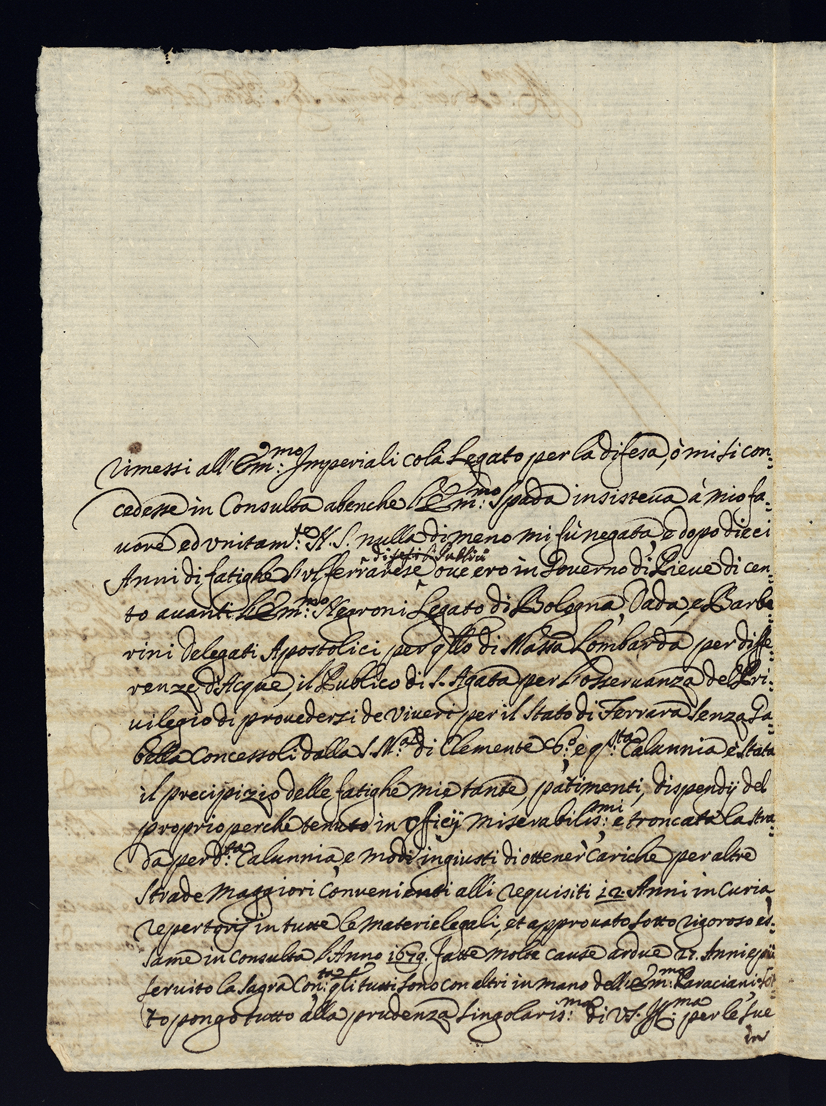 rimessi all'Em:mo Imperiali colà Legato per la difesa, ò mi si con=
cedesse in Consulta abenche l'Em:mo Spada insisteva à mio fa=
vore ed vnitam:te N. S. nulla di meno mi fù negata e dopo dieci
difesi li Publici
Anni di fatighe sul ferrarese ove ero in Governo di Pieve di cen=
to avanti l'Em:mo Negroni Legato di Bologna, Dada, e Barbe=
rini delegati Apostolici per qllo di Massa Lombarda per diffe=
renze d'Acque, il Publico di S. Agata per l'osservanza del Pri=
vilegio di provedersi de Viveri per il Stato di Ferrara senza Ga=
bella Concessoli dalla S. M:a di Clemente e q:sta Calunnia è stata
il precipizio delle fatighe mie tante, patimenti, dispendij del
proprio perche tenuto in Officij miserabilis:mi e troncata la stra=
da per d:ta Calunnia, e modi ingiusti di ottener Cariche per altre
strade maggiori Convenienti alli requisiti 12. Anni in Curia
repertorij in tutte le materie legali, et approvato sotto rigoroso es=
same in Consulta l'Anno 1679. fatte molte cause ardue 21. Anni e più
servito la Sagra Con:ta qli tutti sono con altri in mano dell'Em:mo Paraciani
to pongo tutto alla prudenza singolaris:ma di VS. Ill:ma per le sue
in